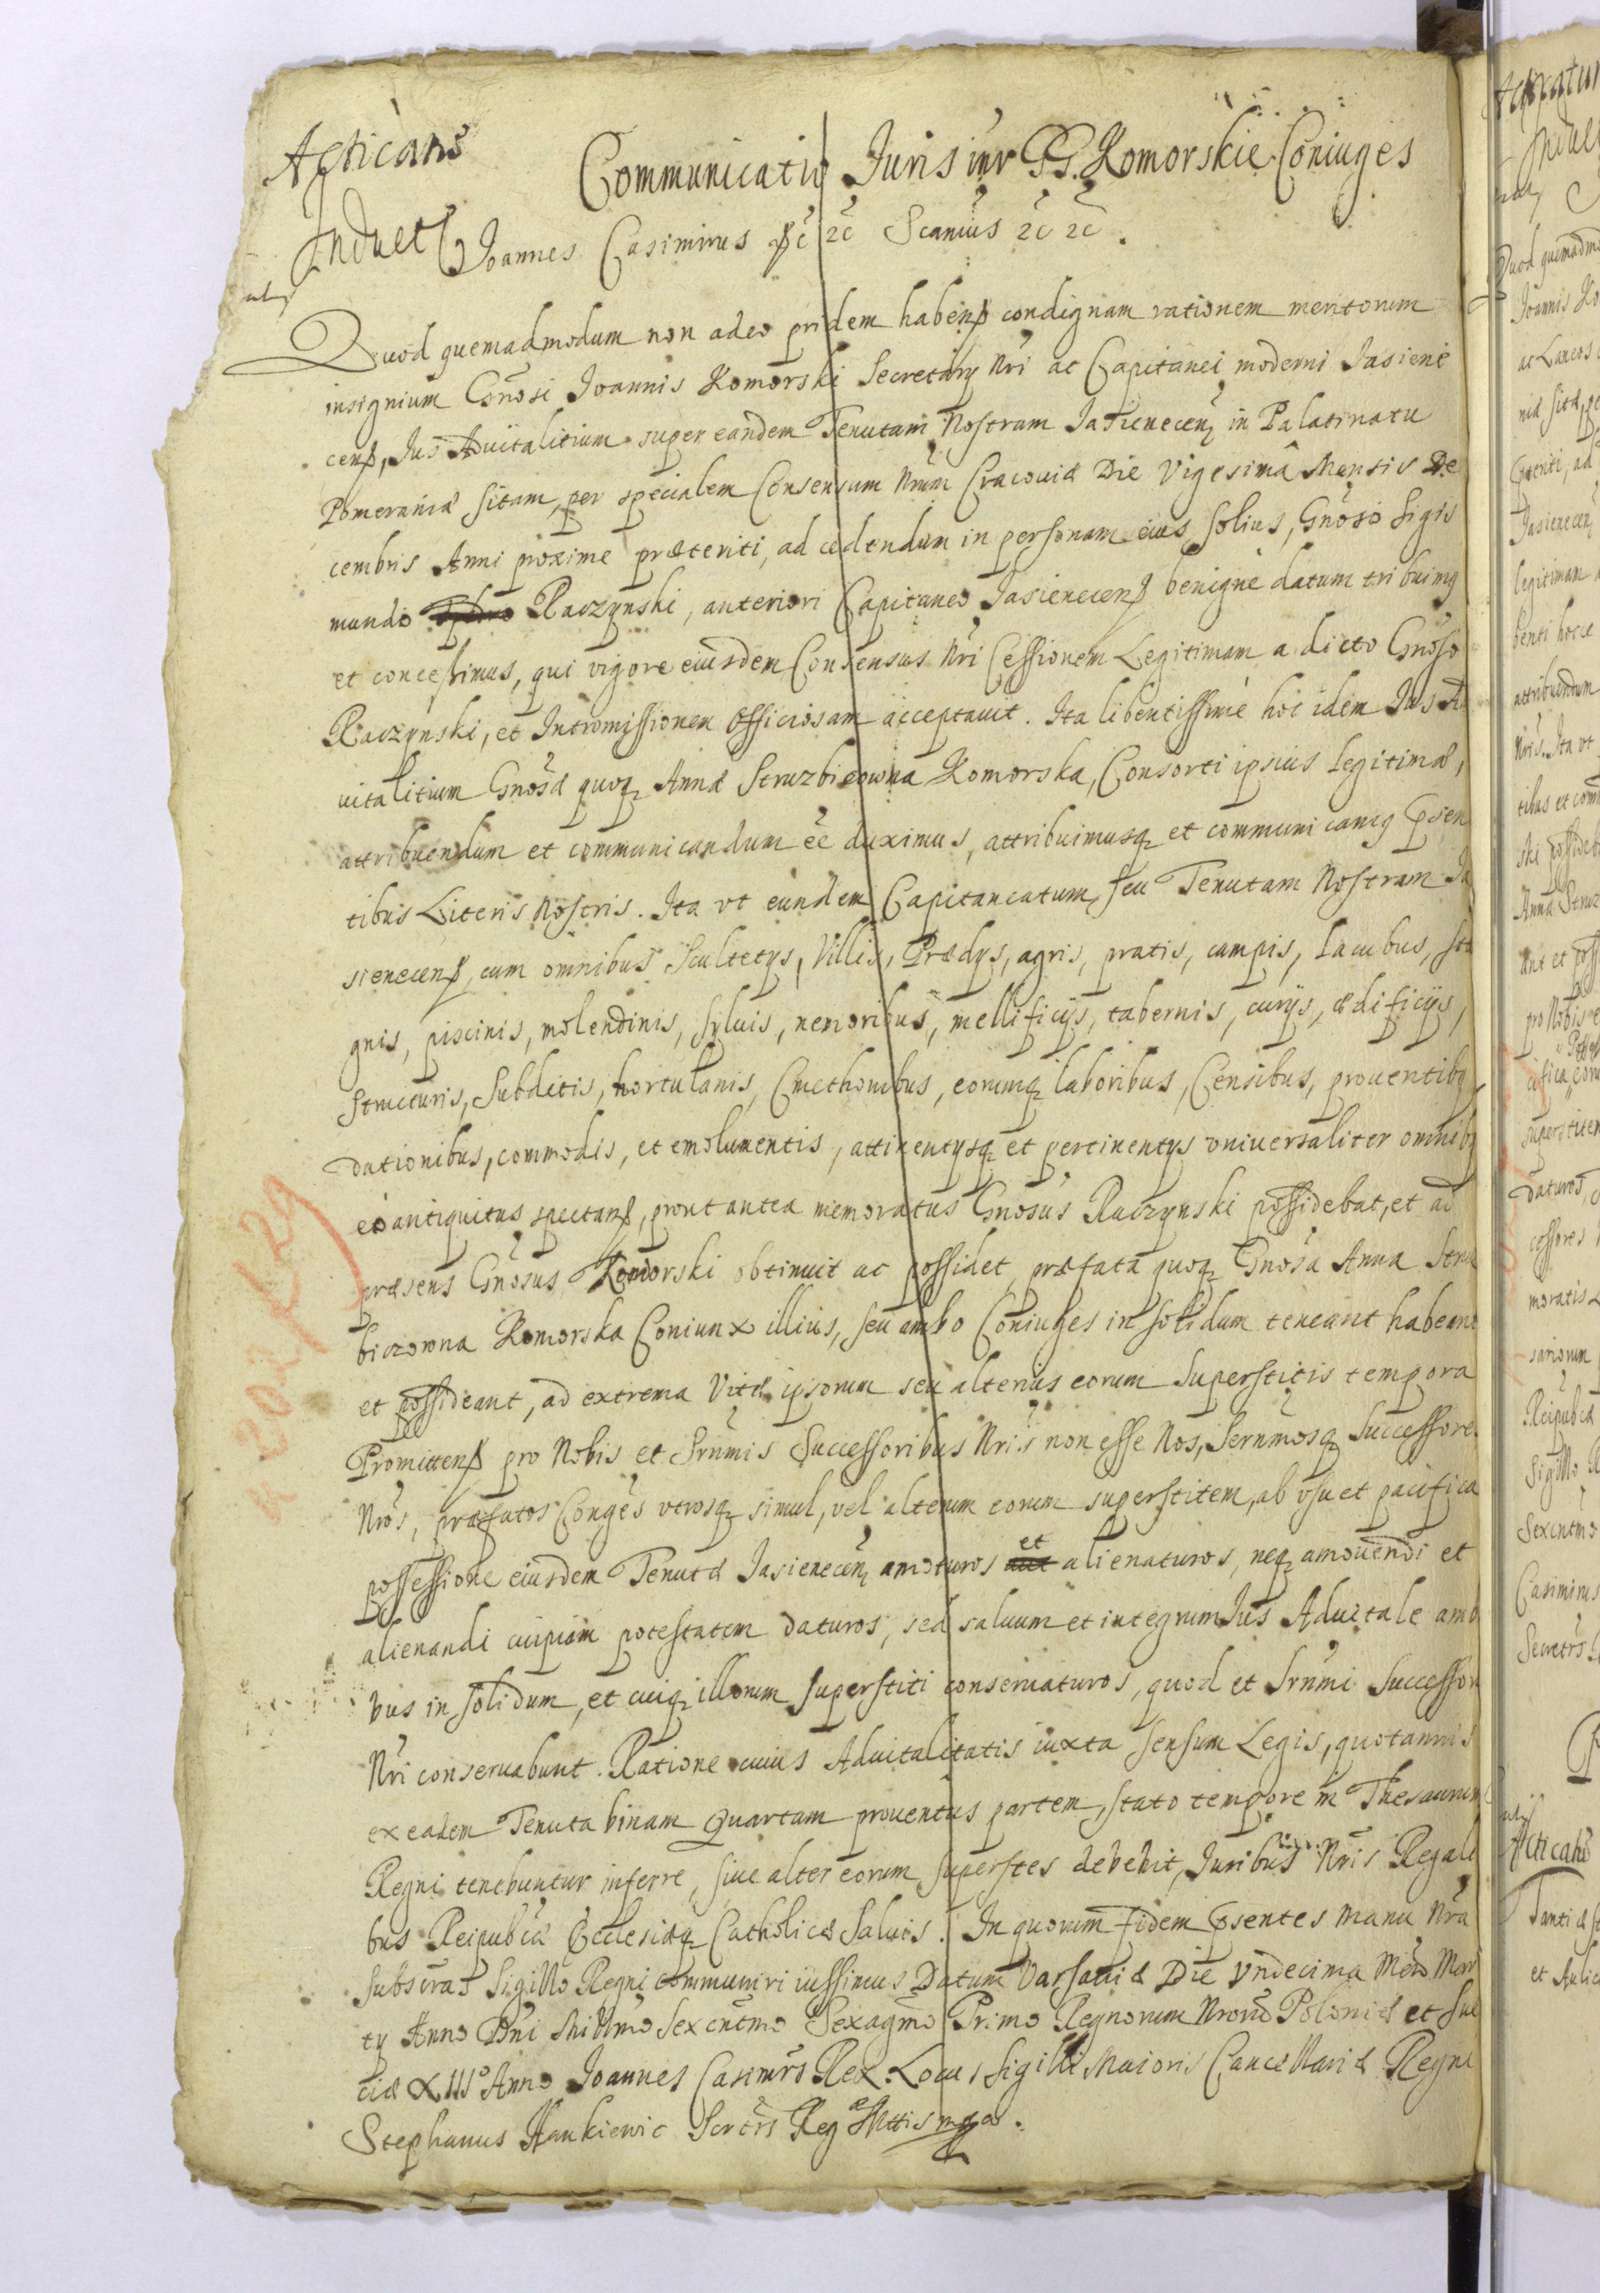 Acticans̃
Induct
Communicatio Juris inr GG. Komorskie Coniuges
Joannes Casimirus &c̃ 2c̃ Scanius 2c̃ 2c̃.
Quod quemadmodum non adeo pridem habenß condignam rationem meritorum
insignium Gnosi Joannis Komorski Secretary Nri ac Capitanei moderni Jasiene
cenß, Jus Aduitalitium super eandem Tenutam Nostram Jasienecen in Palatinatu
Pomeraniæ sitam, per specialem Consensum Nrum Cracouiæ Die Vigesimâ Mensis De
cembris Anni proxime præteriti, ad cedendum in personam eius solius, Gnoso Sigis
mundo Raczynski, anteriori Capitaneo Jasienecenß benigne datum tribuimg
et concessimus, qui vigore eiusdem Consensus Nri Cessionem Legitimam a dicto Gnoso
Raczynski, et Intromissionem officiosam acceptauit. Ita libentissime hoc idem Jus Ad
uitalitium Gnosæ quoq Annæ Struzbiczowna Komorska, Consorti ipsius Legitimæ,
attribuendum et communicandum eē duximus, attribuimusq et communicamg psen
tibus Literis Nostris. Ita vt eundem Capitaneatum, seu Tenutam Nostram Ja
sienecenß, cum omnibus Scultetys, Villis, Prædys, agris, pratis, campis, lacubus, sta
gnis, piscinis, molendinis, syluis, nemoribus, mellificijs, tabernis, curijs, ædificijs,
structuris, subditis, hortulanis, Cmethonibus, eorumq laboribus, Censibus, prouentibg
dationibus, commodis, et emolumentis, attinentysq et pertinentys vniuersaliter omnibg
eo antiquitus spectanß, prout antea memoratus Gnosus Raczynski possidebat, et ad
præsens Gnosus Komorski obtinuit ac possidet, præfata quoq Gnosa Anna Stru
biczowna Komorska Coniunx illius, seu ambo Coniuges in solidum teneant habeant
et possideant, ad extrema Vitæ ipsorum seu alterius eorum Superstitis tempora
Promittenß pro Nobis et Srnmis Successoribus Nris non esse Nos, Sernmosq Successores
Nros, præfatos Conges vtrosq simul, vel alterum eorum superstitem, ab vsu et pacifica
possessione eiusdem Tenutæ Jasienecen amoturos et alienaturos, neq amouendi et
alienandi cuipiam potestatem daturos, sed saluum et integrum Jus Aduitale amb
bus in solidum, et cuiq illorum superstiti conseruaturos, quod et Srnmi Successor
Nri conseruabunt. Ratione cuius Aduitalitatis iuxta sensum Legis, quotannis
ex eadem Tenuta binam Quartam prouentus partem, stato tempore in Thesaurum
Regni tenebuntur inferre, siue alter eorum superstes debebit, Juribus Nris Regali
bus Reipubcæ Ecclesiæq Catholicæ Saluis. In quorum fidem psentes manu Nra
subscras Sigillo Regni communiri iussimus Datum Varsauiæ Die Vndecima Mens Mar
ty Anno Dni Millmo Sexcntmo Sexagmo Primo Regnorum Nrorũ Poloniæ et Sue
ciæ XIII° Anno Joannes Casimrs Rex Locus Sigilli Maioris Cancellariæ Regni
Stephanus Hankiewic Scrtrs Reg Mttis mpa.